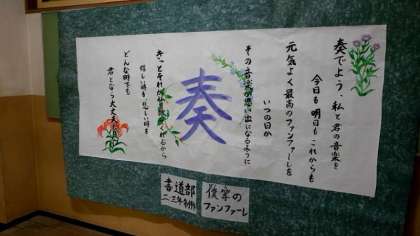 奏でよう、私と君の音楽を
今日も明日もこれからも
元気よく最高のファンファーレを
いつの日か
その音楽が思い出になるように
奏
きっとそれが
嬉しい時も悲しい時も
どんな時でも
君となら大丈夫
書道部
二、三年制作
後輩の
ファンファーレ